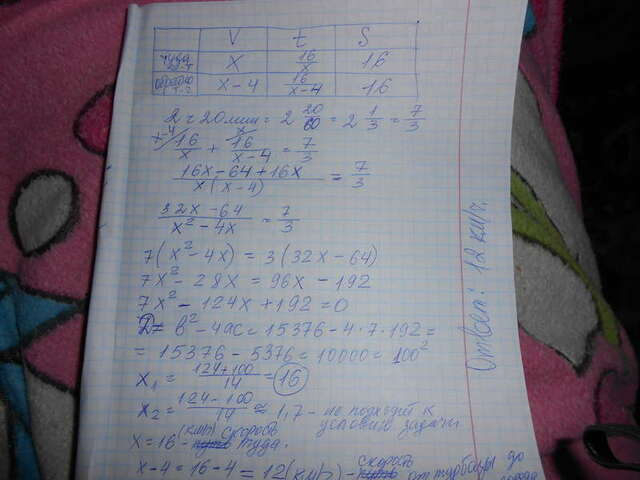 V t S
туда x 16/x 16
обратно x-4 16/x-4 16
2 ч 20 мин = 2 20/60 = 2 1/3 = 7/3
x-4/ 16/x + x/ 16/x-4 = 7/3
16x-64+16x / x(x-4) = 7/3
32x-64 / x²-4x = 7/3
7(x²-4x) = 3(32x-64)
7x²-28x = 96x-192
7x²-124x+192=0
D= b²-4ac=15376-4·7·192=
=15376-5376=10000=100²
x₁ = 124+100/14 = 16
x₂ = 124-100/14 ≈ 1,7 - не подходит к
условию задачи
x=16 (км/ч) - скорость туда.
x-4=16-4=12(км/ч) - скорость от турбазы до
города
Ответ: 12 км/ч.